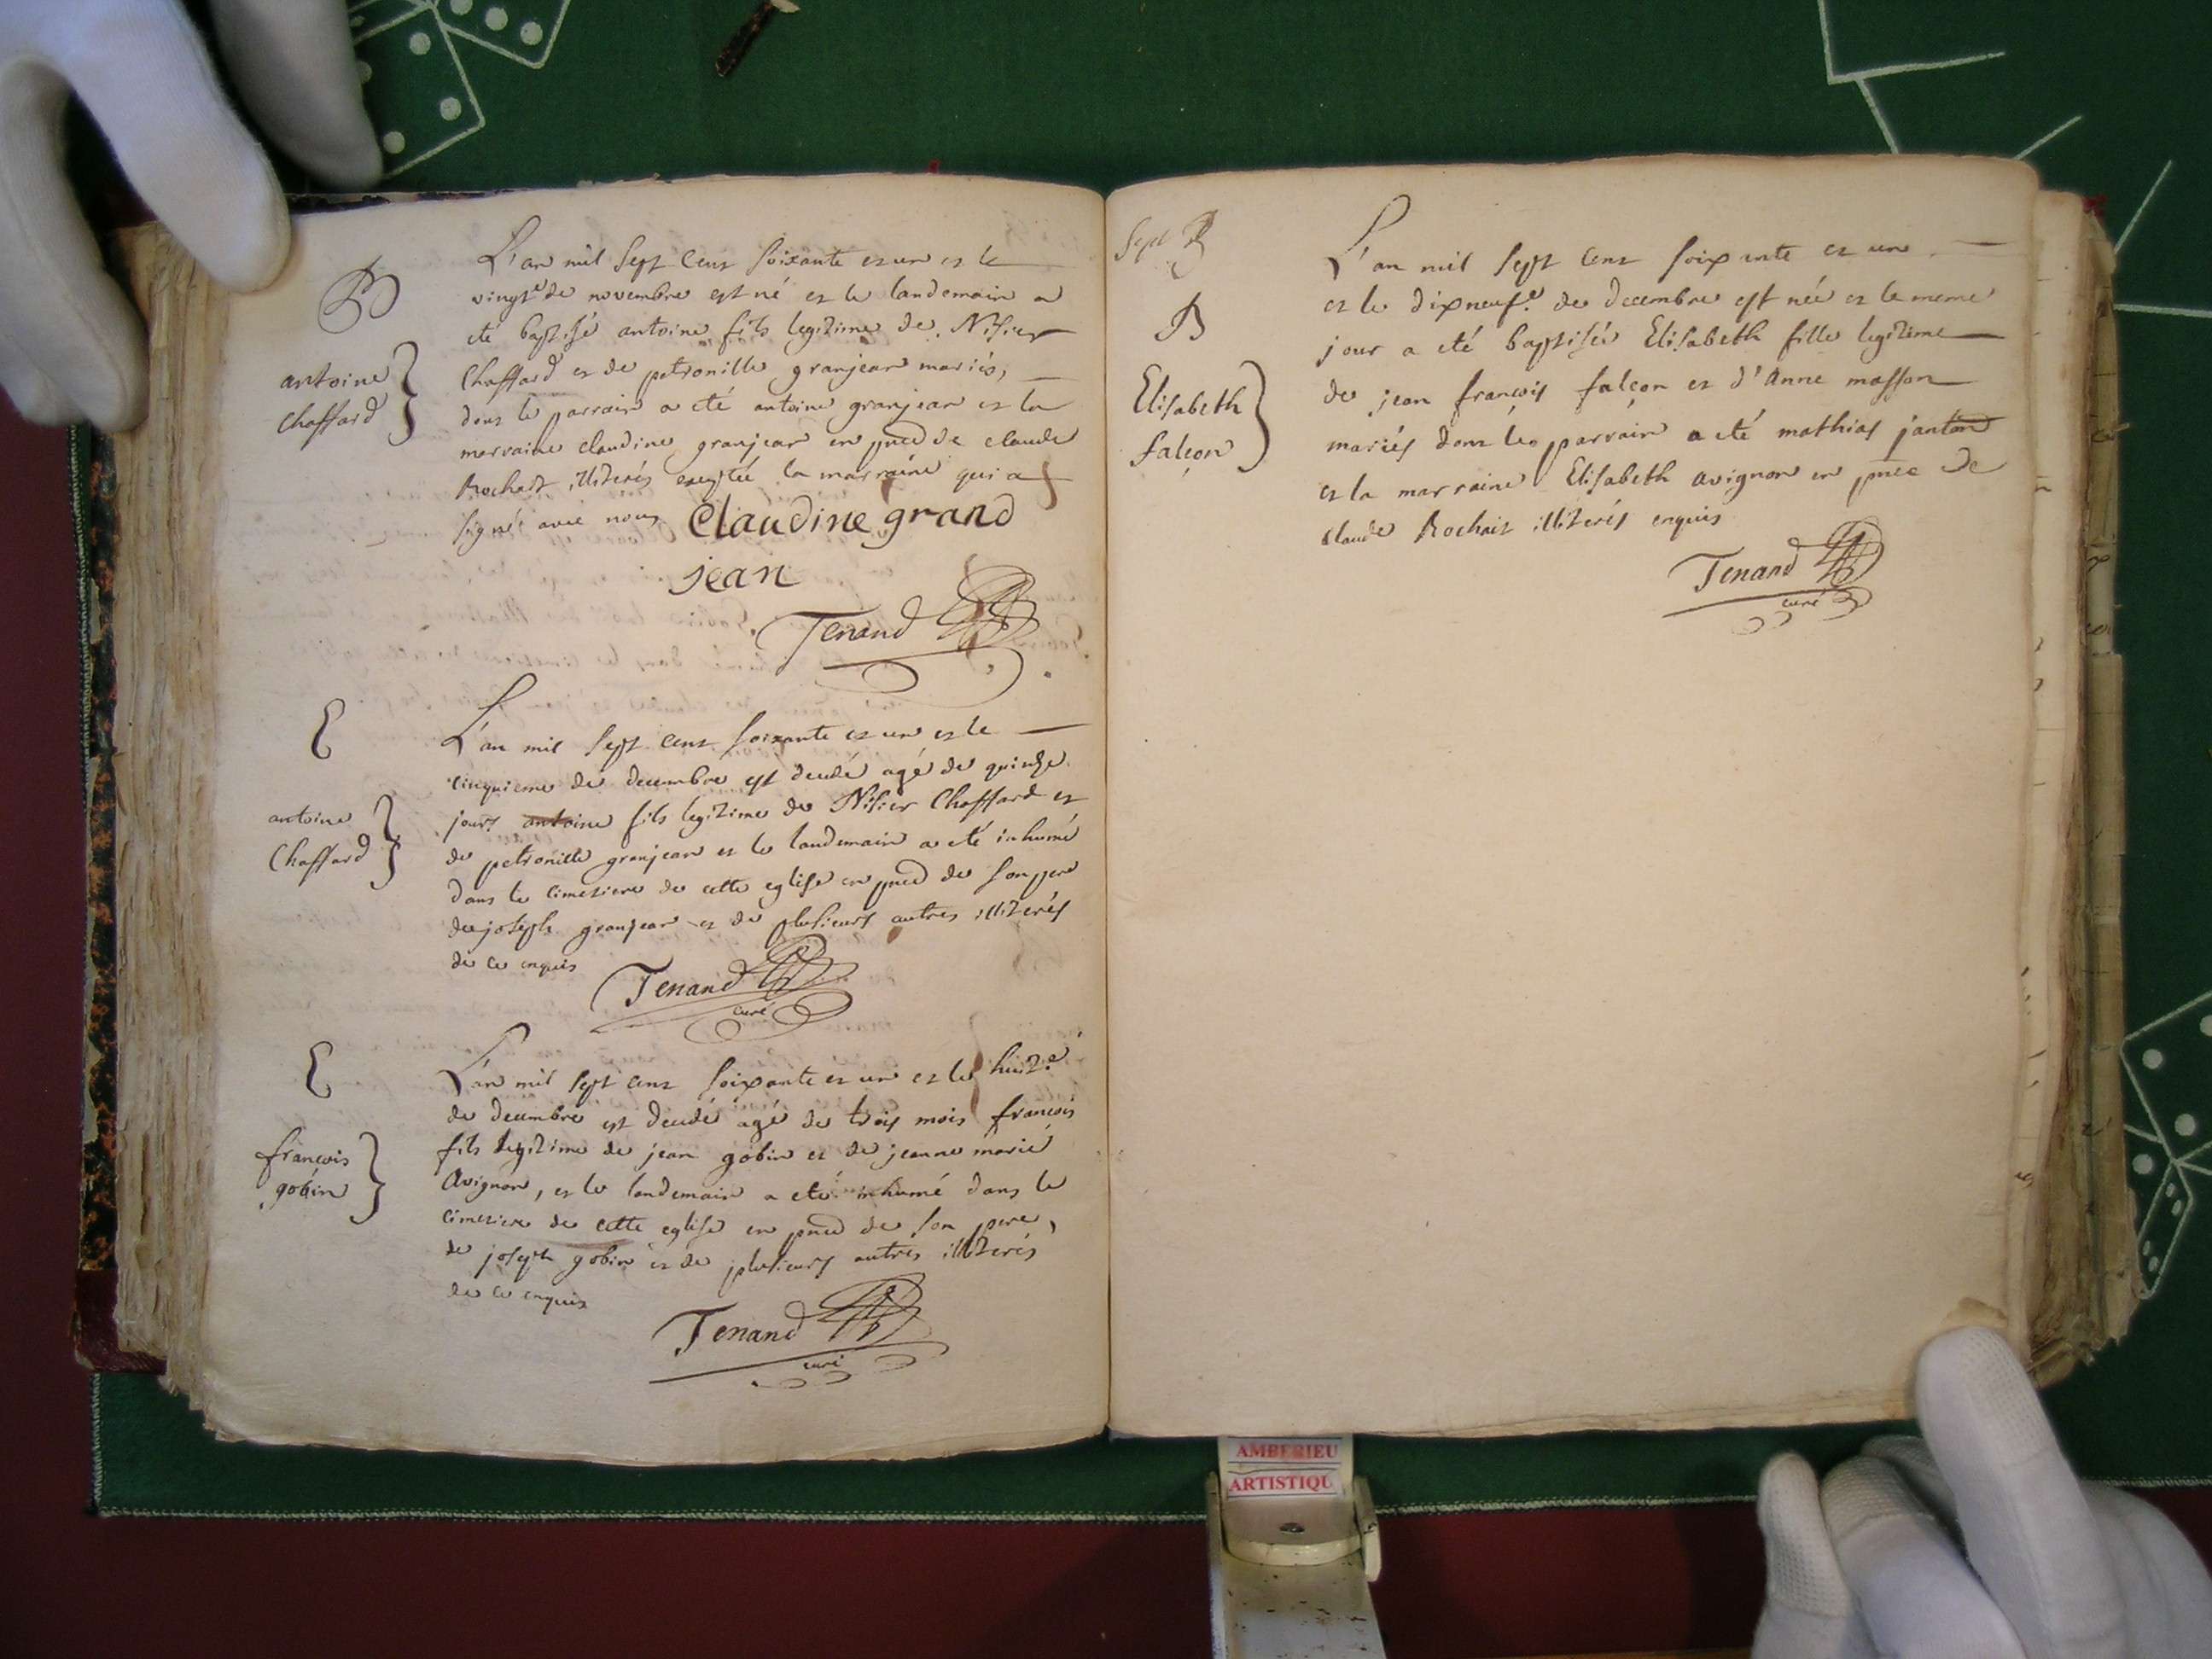 B
antoine
Chaffard
L'an mil sept cent soixante et un et le
vingt.e de novembre est né et le landemain a
eté baptisé antoine fils legitime de Nisier
Chaffard et de petronille granjean mariés,
dont le parrain a eté antoine granjean et la
marraine claudine granjean en pnce de claude
Rochait illiterés exeptée la marraine qui a
signé avec nous Claudine grand
jean
Tenand
E
antoine
Chaffard
L'an mil sept cent soixante et un et le
cinquieme de decembre est decedé agé de quinze
jours antoine fils legitime de Nisier Chaffard et
de petronille granjean et le landemain a eté inhumé
dans le cimetiere de cette eglise en pnce de son pere
de joseph granjean et de plusieurs autres illiterés
de ce enquis
Tenand
curé
E
francois
gobin
L'an mil sept cent soixante et un et le huit.e
de decembre est decedé agé de trois mois francois
fils legitime de jean gobin et de jeanne marie
Avignon, et le landemain a eté inhumé dans le
cimetiere de cette eglise en pnce de son pere,
de joseph gobin et de plusieurs autres illiterés
de ce enquis
Tenand
curé
Sept B
B
Elisabeth
falçon
L'an mil sept cent soixante et un
et le dixneuf.e de decembre est née et le meme
jour a eté baptisée Elisabeth fille legitime
de jean françois falçon et d'Anne masson
mariés dont le parrain a eté mathias janton
et la marraine Elisabeth avignon en pnce de
claude Rochait illiterés enquis
Tenand
curé
AMBERIEU
ARTISTIQU